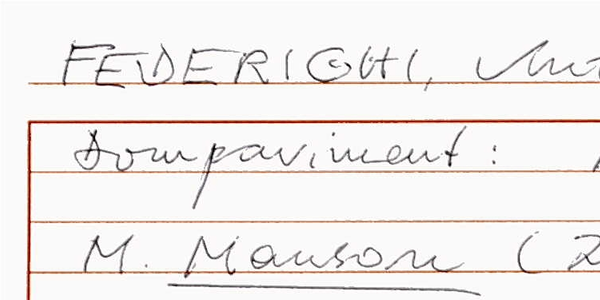 FEDERIGHI,
Dompaviment:
M. Manson (2